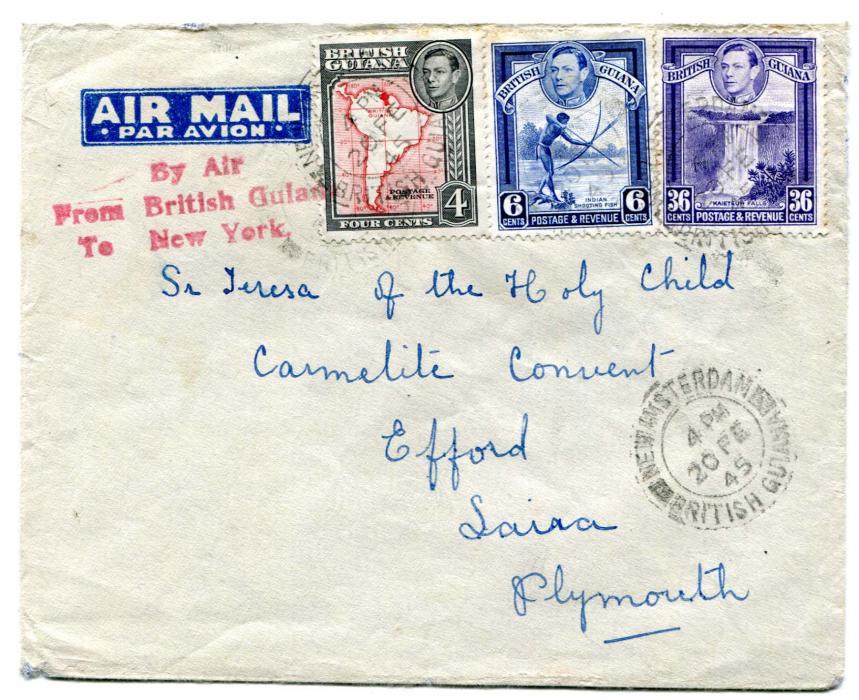 BRITISH GUIANA
BRITISH GUIANA
POSTAGE & REVENUE
4
FOUR CENTS
BRITISH GUIANA
6 CENTS
INDIAN SHOOTING FISH
POSTAGE & REVENUE
6 CENTS
BRITISH GUIANA
36 CENTS
KAIETEUR FALLS
POSTAGE & REVENUE
36 CENTS
AIR MAIL
PAR AVION
By Air
From British Guiana
To New York,
4 PM
20 FE
45
Sr Teresa of the Holy Child
Carmelite Convent
Efford
Laira
Plymouth
NEW AMSTERDAM
4 PM
20 FE
45
BRITISH GUIANA